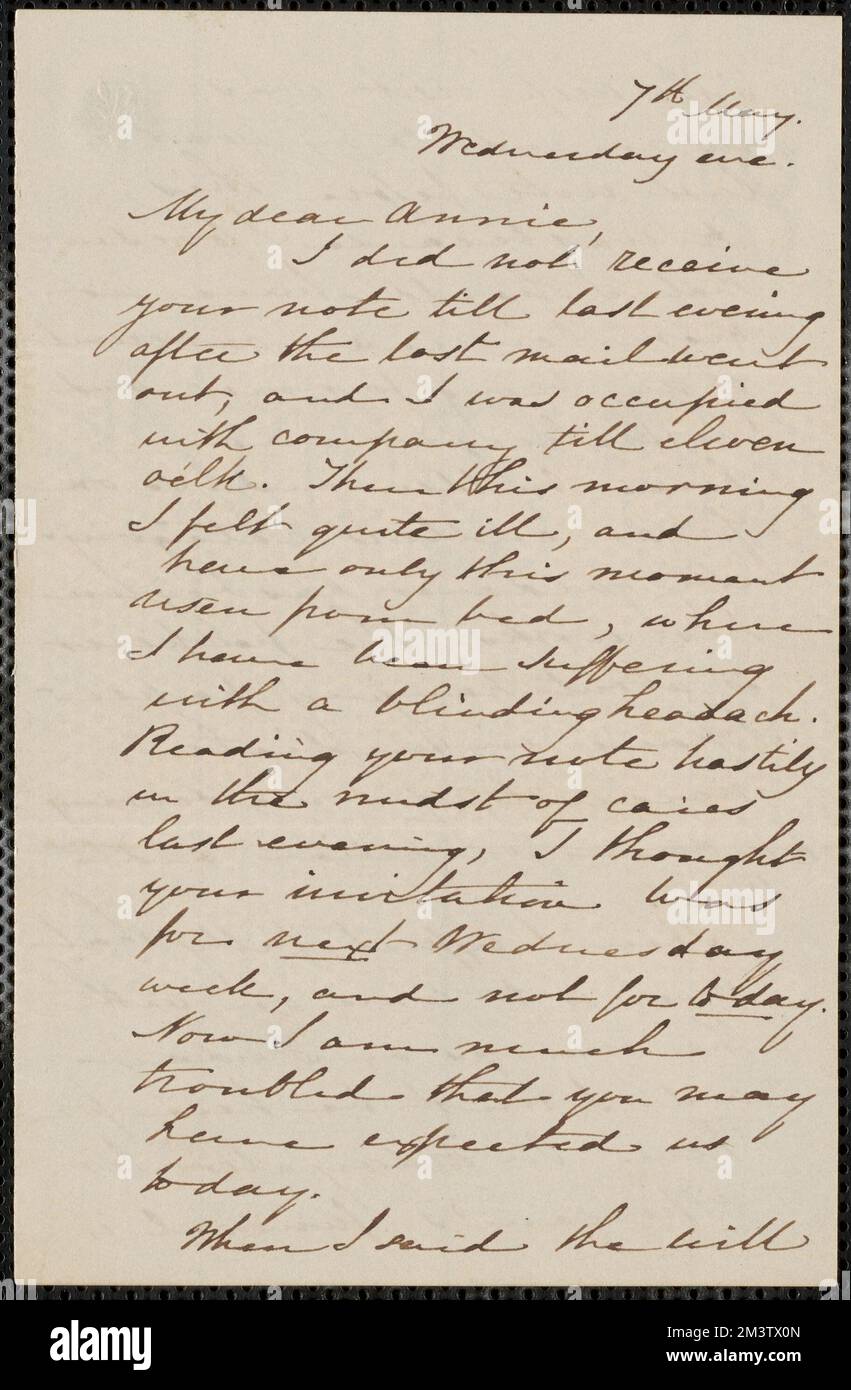 7th May.
Wednesday eve.
My dear Annie,
I did not receive
your note till last evening
after the last mail went
out, and I was occupied
with company till eleven
o'clk. Then this morning
I felt quite ill, and
have only this moment
risen from bed, where
I have been suffering
with a blinding headach.
Reading your note hastily
in the midst of cares
last evening, I thought
your invitation was
for next Wednesday
week, and not for today.
Now I am much
troubled that you may
have expected us
today.
When I said the will
alamy
Image ID: 2M3TX0N
www.alamy.com